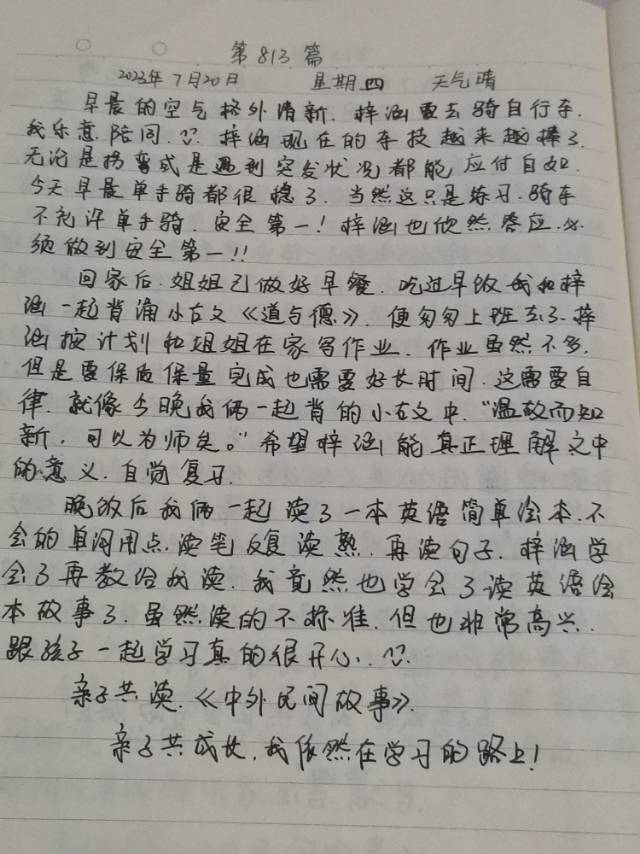 第813篇
2023年7月20日 星期四 天气晴
早晨的空气格外清新.梓涵要去骑自行车.
我乐意陪同.梓涵现在的车技越来越棒了.
无论是拐弯或是遇到突发状况都能应付自如.
今天早晨单手骑都很稳了.当然这只是练习.骑车
不允许单手骑.安全第一!梓涵也欣然答应.必
须做到安全第一!!
回家后.姐姐已做好早餐.吃过早饭我和梓
涵一起背诵小古文《道与德》.便匆匆上班去了.梓
涵按计划和姐姐在家写作业.作业虽然不多.
但是要保质保量完成也需要好长时间.这需要自
律.就像今晚我俩一起背的小古文中."温故而知
新,可以为师矣。"希望梓涵能真正理解文中
的意义.自觉复习.
晚饭后我俩一起读了一本英语简单绘本.不
会的单词用点读笔反复读熟.再读句子.梓涵学
会了再教给我读.我竟然也学会了读英语绘
本故事了.虽然读的不标准.但也非常高兴.
跟孩子一起学习真的很开心..
亲子共读.《中外民间故事》.
亲子共成长.我依然在学习的路上!